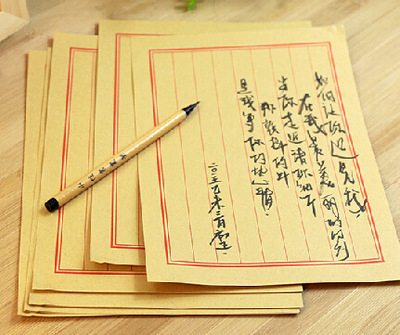 如何让你遇见我
在我最美丽的时刻
当你走近请你细听
那颤抖的叶
是我等你的热情
二〇一五乙未